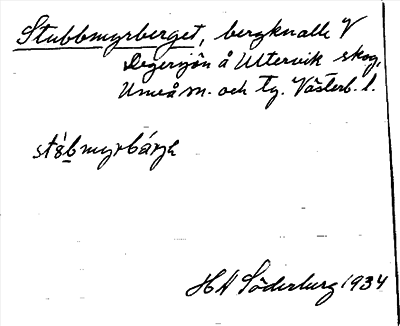 Stubbmyrberget, bergknalle V
Degersjön å Ultervik skog,
Umeå m. och tg. Västerb. l.
stò̀bmyrbárjh
H A Söderburg 1934